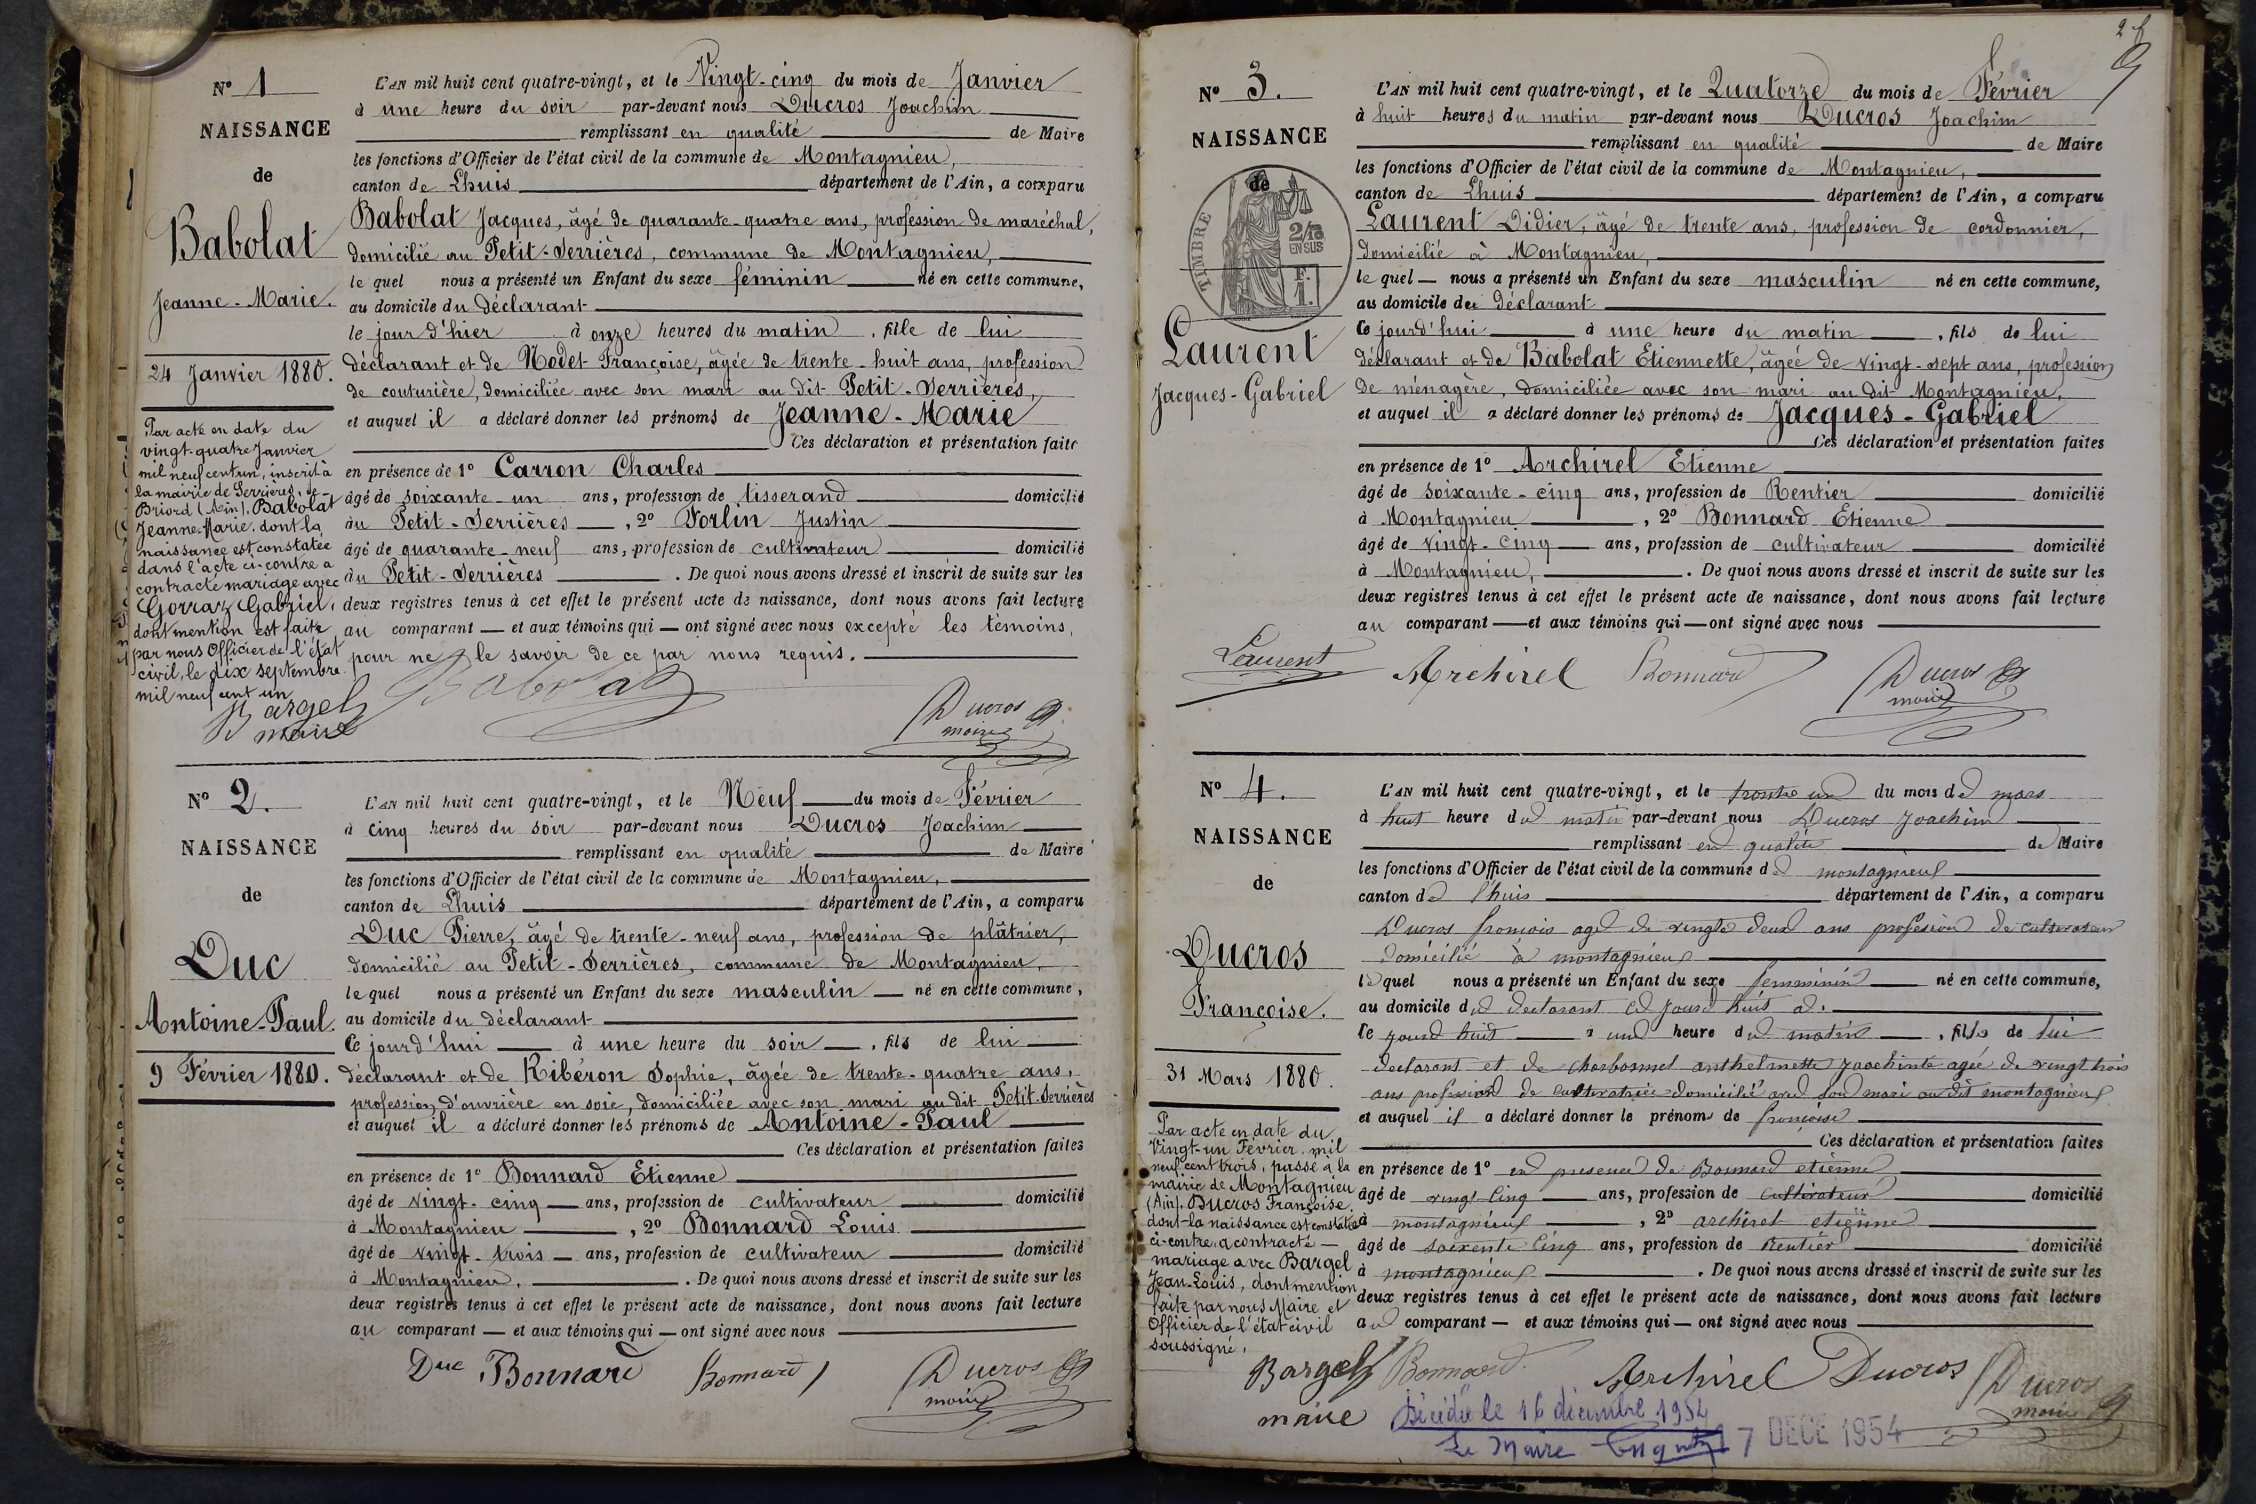 N° 1
NAISSANCE
de
Babolat
Jeanne-Marie.
24 Janvier 1880.
Par acte en date du
vingt-quatre Janvier
mil neuf cent un, inscrit à
la mairie de Serrières-de-
Briord (Ain), Babolat
Jeanne-Marie, dont la
naissance est constatée
dans l'acte ci-contre a
contracté mariage avec
Gorraz Gabriel,
dont mention est faite
par nous Officier de l'état
civil, le dix septembre
mil neuf cent un
Bargel
maire
L'AN mil huit cent quatre-vingt, et le Vingt-cinq du mois de Janvier
à une heure du soir par-devant nous Ducros Joachim
remplissant en qualité de Maire
les fonctions d'Officier de l'état civil de la commune de Montagnieu,
canton de Lhuis département de l'Ain, a comparu
Babolat Jacques, âgé de quarante-quatre ans, profession de maréchal,
domicilié au Petit-Serrières, commune de Montagnieu,
le quel nous a présenté un Enfant du sexe féminin né en cette commune,
au domicile du déclarant
le jour d'hier à onze heures du matin, fille de lui
déclarant et de Nodet Françoise, âgée de trente-huit ans, profession
de couturière, domiciliée avec son mari au dit Petit-Serrières,
et auquel il a déclaré donner les prénoms de Jeanne-Marie
Ces déclaration et présentation faite
en présence de 1° Carron Charles
âgé de soixante-un ans, profession de tisserand domicilié
au Petit-Serrières, 2° Vorlin Justin
âgé de quarante-neuf ans, profession de cultivateur domicilié
au Petit-Serrières. De quoi nous avons dressé et inscrit de suite sur les
deux registres tenus à cet effet le présent acte de naissance, dont nous avons fait lecture
au comparant — et aux témoins qui — ont signé avec nous excepté les témoins,
pour ne le savoir de ce par nous requis.
Babolat
Ducros
maire
N° 2.
NAISSANCE
de
Duc
Antoine-Paul.
9 Février 1880.
L'AN mil huit cent quatre-vingt, et le Neuf du mois de Février
à cinq heures du soir par-devant nous Ducros Joachim
remplissant en qualité de Maire
les fonctions d'Officier de l'état civil de la commune de Montagnieu,
canton de Lhuis département de l'Ain, a comparu
Duc Pierre, âgé de trente-neuf ans, profession de plâtrier,
domicilié au Petit-Serrières, commune de Montagnieu,
le quel nous a présenté un Enfant du sexe masculin — né en cette commune,
au domicile du déclarant
Ce jourd'hui — à une heure du soir —, fils de lui
déclarant et de Ribéron Sophie, âgée de trente-quatre ans,
profession d'ouvrière en soie, domiciliée avec son mari au dit Petit-Serrières
et auquel il a déclaré donner les prénoms de Antoine-Paul
Ces déclaration et présentation faites
en présence de 1° Bonnard Etienne
âgé de vingt-cinq — ans, profession de cultivateur domicilié
à Montagnieu, 2° Bonnard Louis
âgé de vingt-trois — ans, profession de cultivateur domicilié
à Montagnieu. De quoi nous avons dressé et inscrit de suite sur les
deux registres tenus à cet effet le présent acte de naissance, dont nous avons fait lecture
au comparant — et aux témoins qui — ont signé avec nous
Duc Bonnard Bonnard Ducros
maire
N° 3.
NAISSANCE
de
TIMBRE
2/10
EN SUS
F.
1.
Laurent
Jacques-Gabriel
L'AN mil huit cent quatre-vingt, et le Quatorze du mois de Février
à huit heures du matin par-devant nous Ducros Joachim
remplissant en qualité de Maire
les fonctions d'Officier de l'état civil de la commune de Montagnieu,
canton de Lhuis département de l'Ain, a comparu
Laurent Didier, âgé de trente ans, profession de cordonnier,
domicilié à Montagnieu,
le quel — nous a présenté un Enfant du sexe masculin né en cette commune,
au domicile du déclarant
Ce jourd'hui à une heure du matin, fils de lui
déclarant et de Babolat Etiennette, âgée de vingt-sept ans, profession
de ménagère, domiciliée avec son mari au dit Montagnieu,
et auquel il a déclaré donner les prénoms de Jacques-Gabriel
Ces déclaration et présentation faites
en présence de 1° Archirel Etienne
âgé de soixante-cinq ans, profession de Rentier domicilié
à Montagnieu, 2° Bonnard Etienne
âgé de vingt-cinq — ans, profession de cultivateur domicilié
à Montagnieu. De quoi nous avons dressé et inscrit de suite sur les
deux registres tenus à cet effet le présent acte de naissance, dont nous avons fait lecture
au comparant — et aux témoins qui — ont signé avec nous
Laurent Archirel Bonnard Ducros
maire
N° 4.
NAISSANCE
de
Ducros
Françoise.
31 Mars 1880.
Par acte en date du
Vingt-un Février mil
neuf cent trois, passé à la
mairie de Montagnieu
(Ain), Ducros Françoise,
dont la naissance est constatée
ci-contre, a contracté
mariage avec Bargel
Jean-Louis, dont mention
faite par nous Maire et
Officier de l'état civil
soussigné,
Bargel
maire
L'AN mil huit cent quatre-vingt, et le trente un du mois de mars
à huit heure du matin par-devant nous Ducros Joachim
remplissant en qualité de Maire
les fonctions d'Officier de l'état civil de la commune de montagnieux
canton de l'huis département de l'Ain, a comparu
Ducros francois agé de vingte deux ans profesion de cultivateur
domicilié à montagnieux
le quel nous a présenté un Enfant du sexe femminin né en cette commune,
au domicile du declarant ce jourd huit a.
le jourd huit à une heure du matin, fille de lui
declarant et de charbonnet anthelmette joachinte agée de vingt trois
ans profession de cultivatrice domicilié avec son mari au dit montagnieux
et auquel il a déclaré donner le prénom de françoise
Ces déclaration et présentation faites
en présence de 1° en presence de Bonnard etienne
âgé de vingt cinq ans, profession de cultivateur domicilié
à montagnieux, 2° archirel etienne
âgé de soixente cinq ans, profession de Rentier domicilié
à montagnieux. De quoi nous avons dressé et inscrit de suite sur les
deux registres tenus à cet effet le présent acte de naissance, dont nous avons fait lecture
au comparant — et aux témoins qui — ont signé avec nous
Bonnard Archirel Ducros Ducros
maire
Décédée le 16 décembre 1954
Le Maire
17 DECE 1954